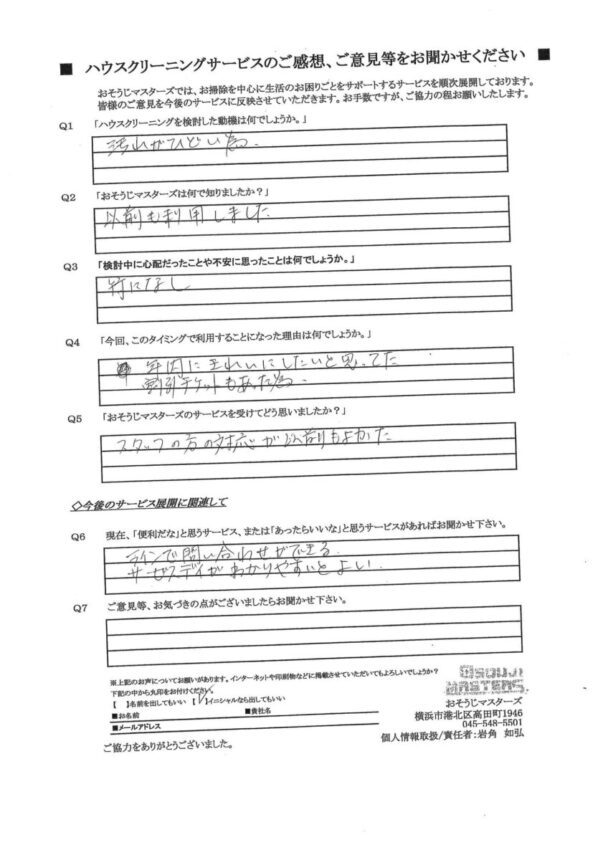 ■ ハウスクリーニングサービスのご感想、ご意見等をお聞かせください ■
おそうじマスターズでは、お掃除を中心に生活のお困りごとをサポートするサービスを順次展開しております。
皆様のご意見を今後のサービスに反映させていただきます。お手数ですが、ご協力の程お願いしたします。
Q1 「ハウスクリーニングを検討した動機は何でしょうか。」
汚れがひどい為.
Q2 「おそうじマスターズは何で知りましたか？」
以前も利用しました
Q3 「検討中に心配だったことや不安に思ったことは何でしょうか。」
特になし
Q4 「今回、このタイミングで利用することになった理由は何でしょうか。」
年内にきれいにしたいと思ってた
割引チケットもあった為.
Q5 「おそうじマスターズのサービスを受けてどう思いましたか？」
スタッフの方の対応が以前もよかった
◇今後のサービス展開に関連して
Q6 現在、「便利だな」と思うサービス、または「あったらいいな」と思うサービスがあればお聞かせ下さい。
ラインで問い合わせができる.
サービスデイがわかりやすいとよい.
Q7 ご意見等、お気づきの点がございましたらお聞かせ下さい。
※上記のお声についてお願いがあります。インターネットや印刷物などに掲載させていただいてもよろしいでしょうか？
下記の中から丸印をお付けください。
【 】名前を出してもいい 【✓】イニシャルなら出してもいい
■お名前 ■貴社名
■メールアドレス
ご協力をありがとうございました。
OSOUJI
MASTERS.
おそうじマスターズ
横浜市港北区高田町1946
045-548-5501
個人情報取扱/責任者:岩角 如弘